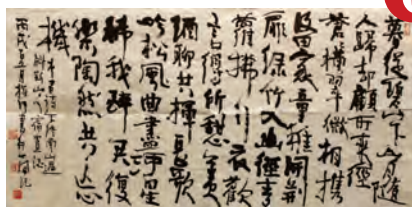 暮從碧山下山月隨
人歸却顧所來徑
蒼蒼橫翠微相攜
及田家童稚開荊
扉綠竹入幽徑青
蘿拂行衣歡
言得所憩美
酒聊共揮長歌
吟松風曲盡河星
稀我醉君復
樂陶然共忘
機
下終南山過
斛斯山人宿置酒
丙戌